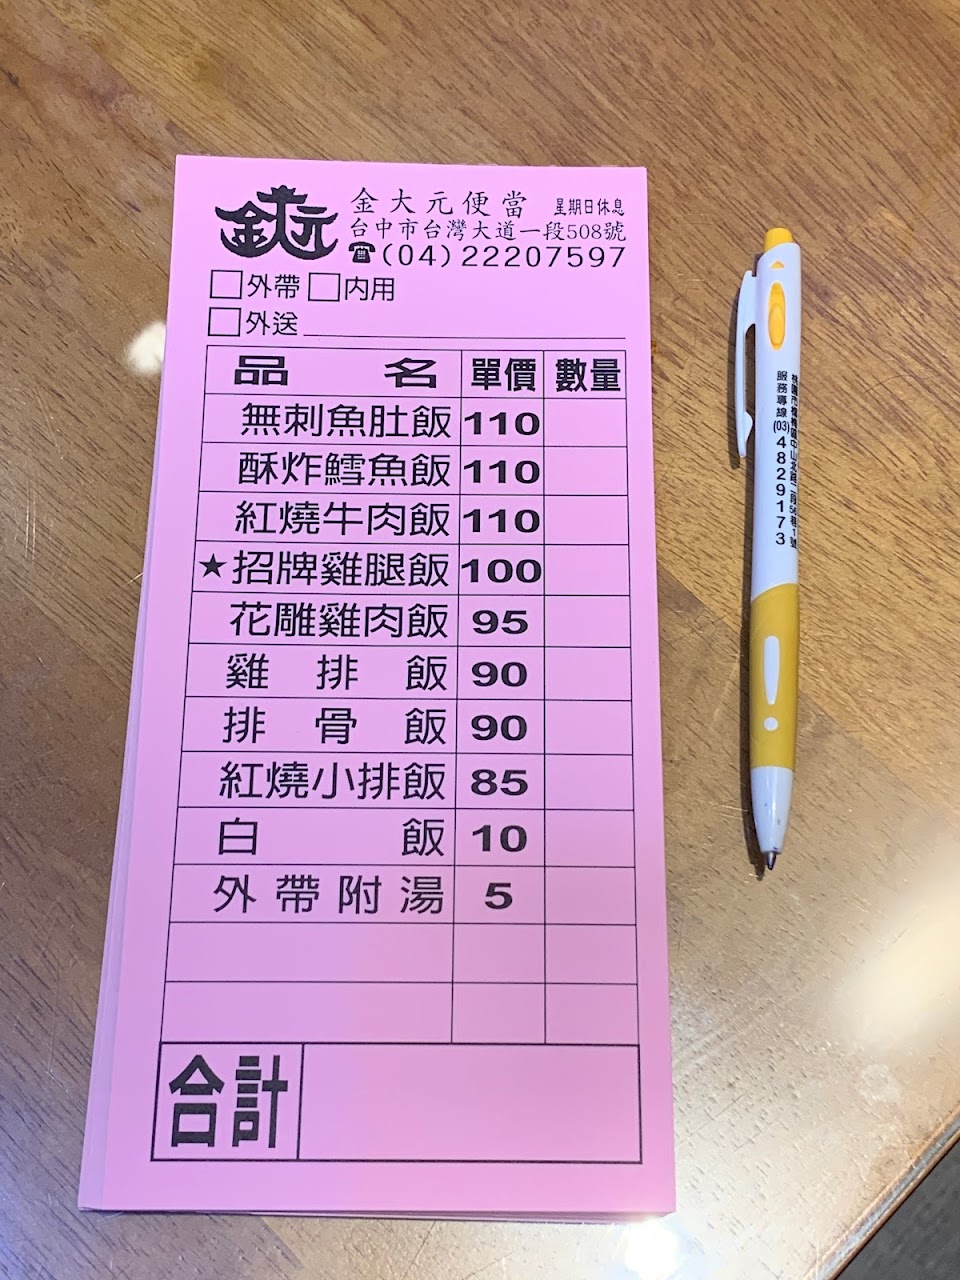 金大元
金大元便當 星期日休息
台中市台灣大道一段508號
☎(04)22207597
□外帶 □內用
□外送
品名 單價 數量
無刺魚肚飯 110
酥炸鱈魚飯 110
紅燒牛肉飯 110
★招牌雞腿飯 100
花雕雞肉飯 95
雞排飯 90
排骨飯 90
紅燒小排飯 85
白飯 10
外帶附湯 5
合計
桃園市楊梅區中山北路二段56巷1號
服務專線(03)4829173